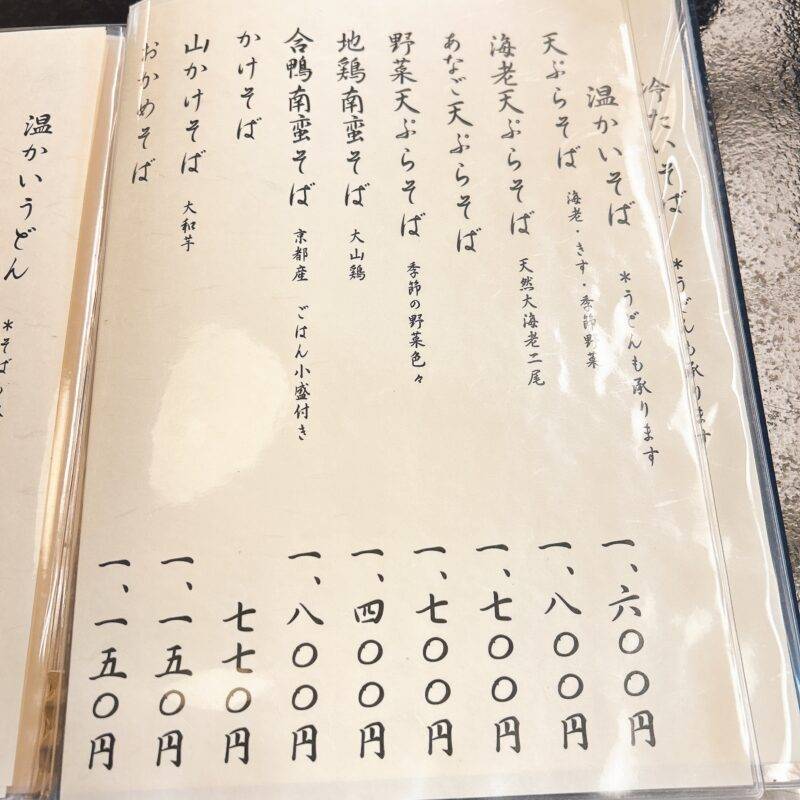 冷たいそば ＊うどんも承ります
温かいそば ＊うどんも承ります
天ぷらそば 海老・きす・季節野菜 一、六〇〇円
海老天ぷらそば 天然大海老二尾 一、八〇〇円
あなご天ぷらそば 一、七〇〇円
野菜天ぷらそば 季節の野菜色々 一、七〇〇円
地鶏南蛮そば 大山鶏 一、四〇〇円
合鴨南蛮そば 京都産 ごはん小盛付き 一、八〇〇円
かけそば 七七〇円
山かけそば 大和芋 一、一五〇円
おかめそば 一、一五〇円
温かいうどん ＊そばも